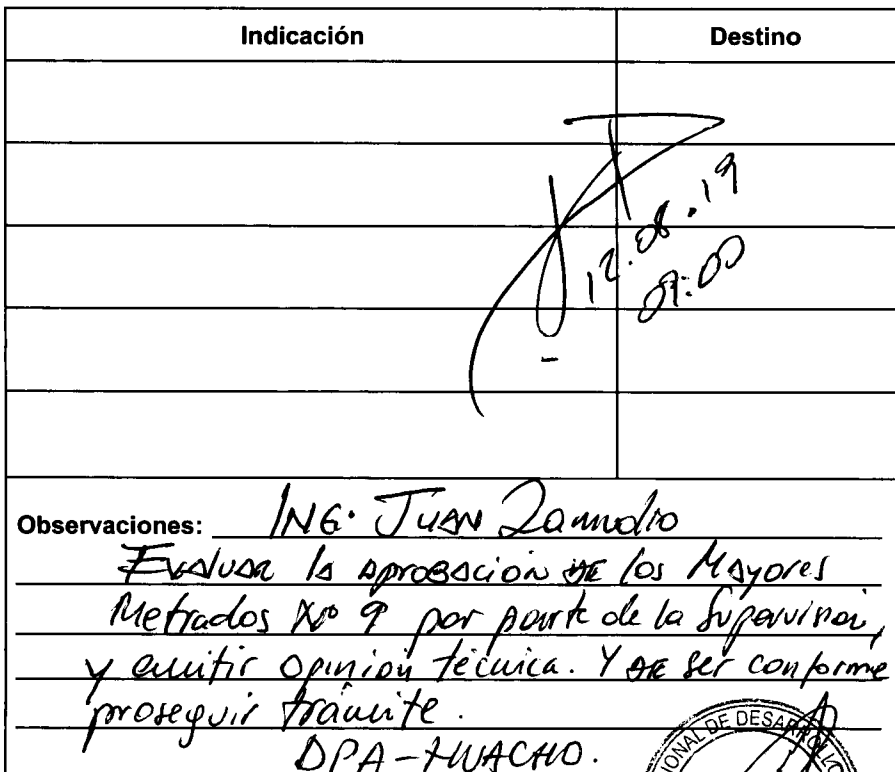 Indicación Destino
12.08.19
09:00
Observaciones: ING. JUAN Zamudio
Evaluar la aprobación de los Mayores
Metrados Nº 9 por parte de la Supervisión,
y emitir opinión técnica. Y de ser conforme
proseguir trámite.
DPA-HUACHO.
NAL DE DESARROLLO